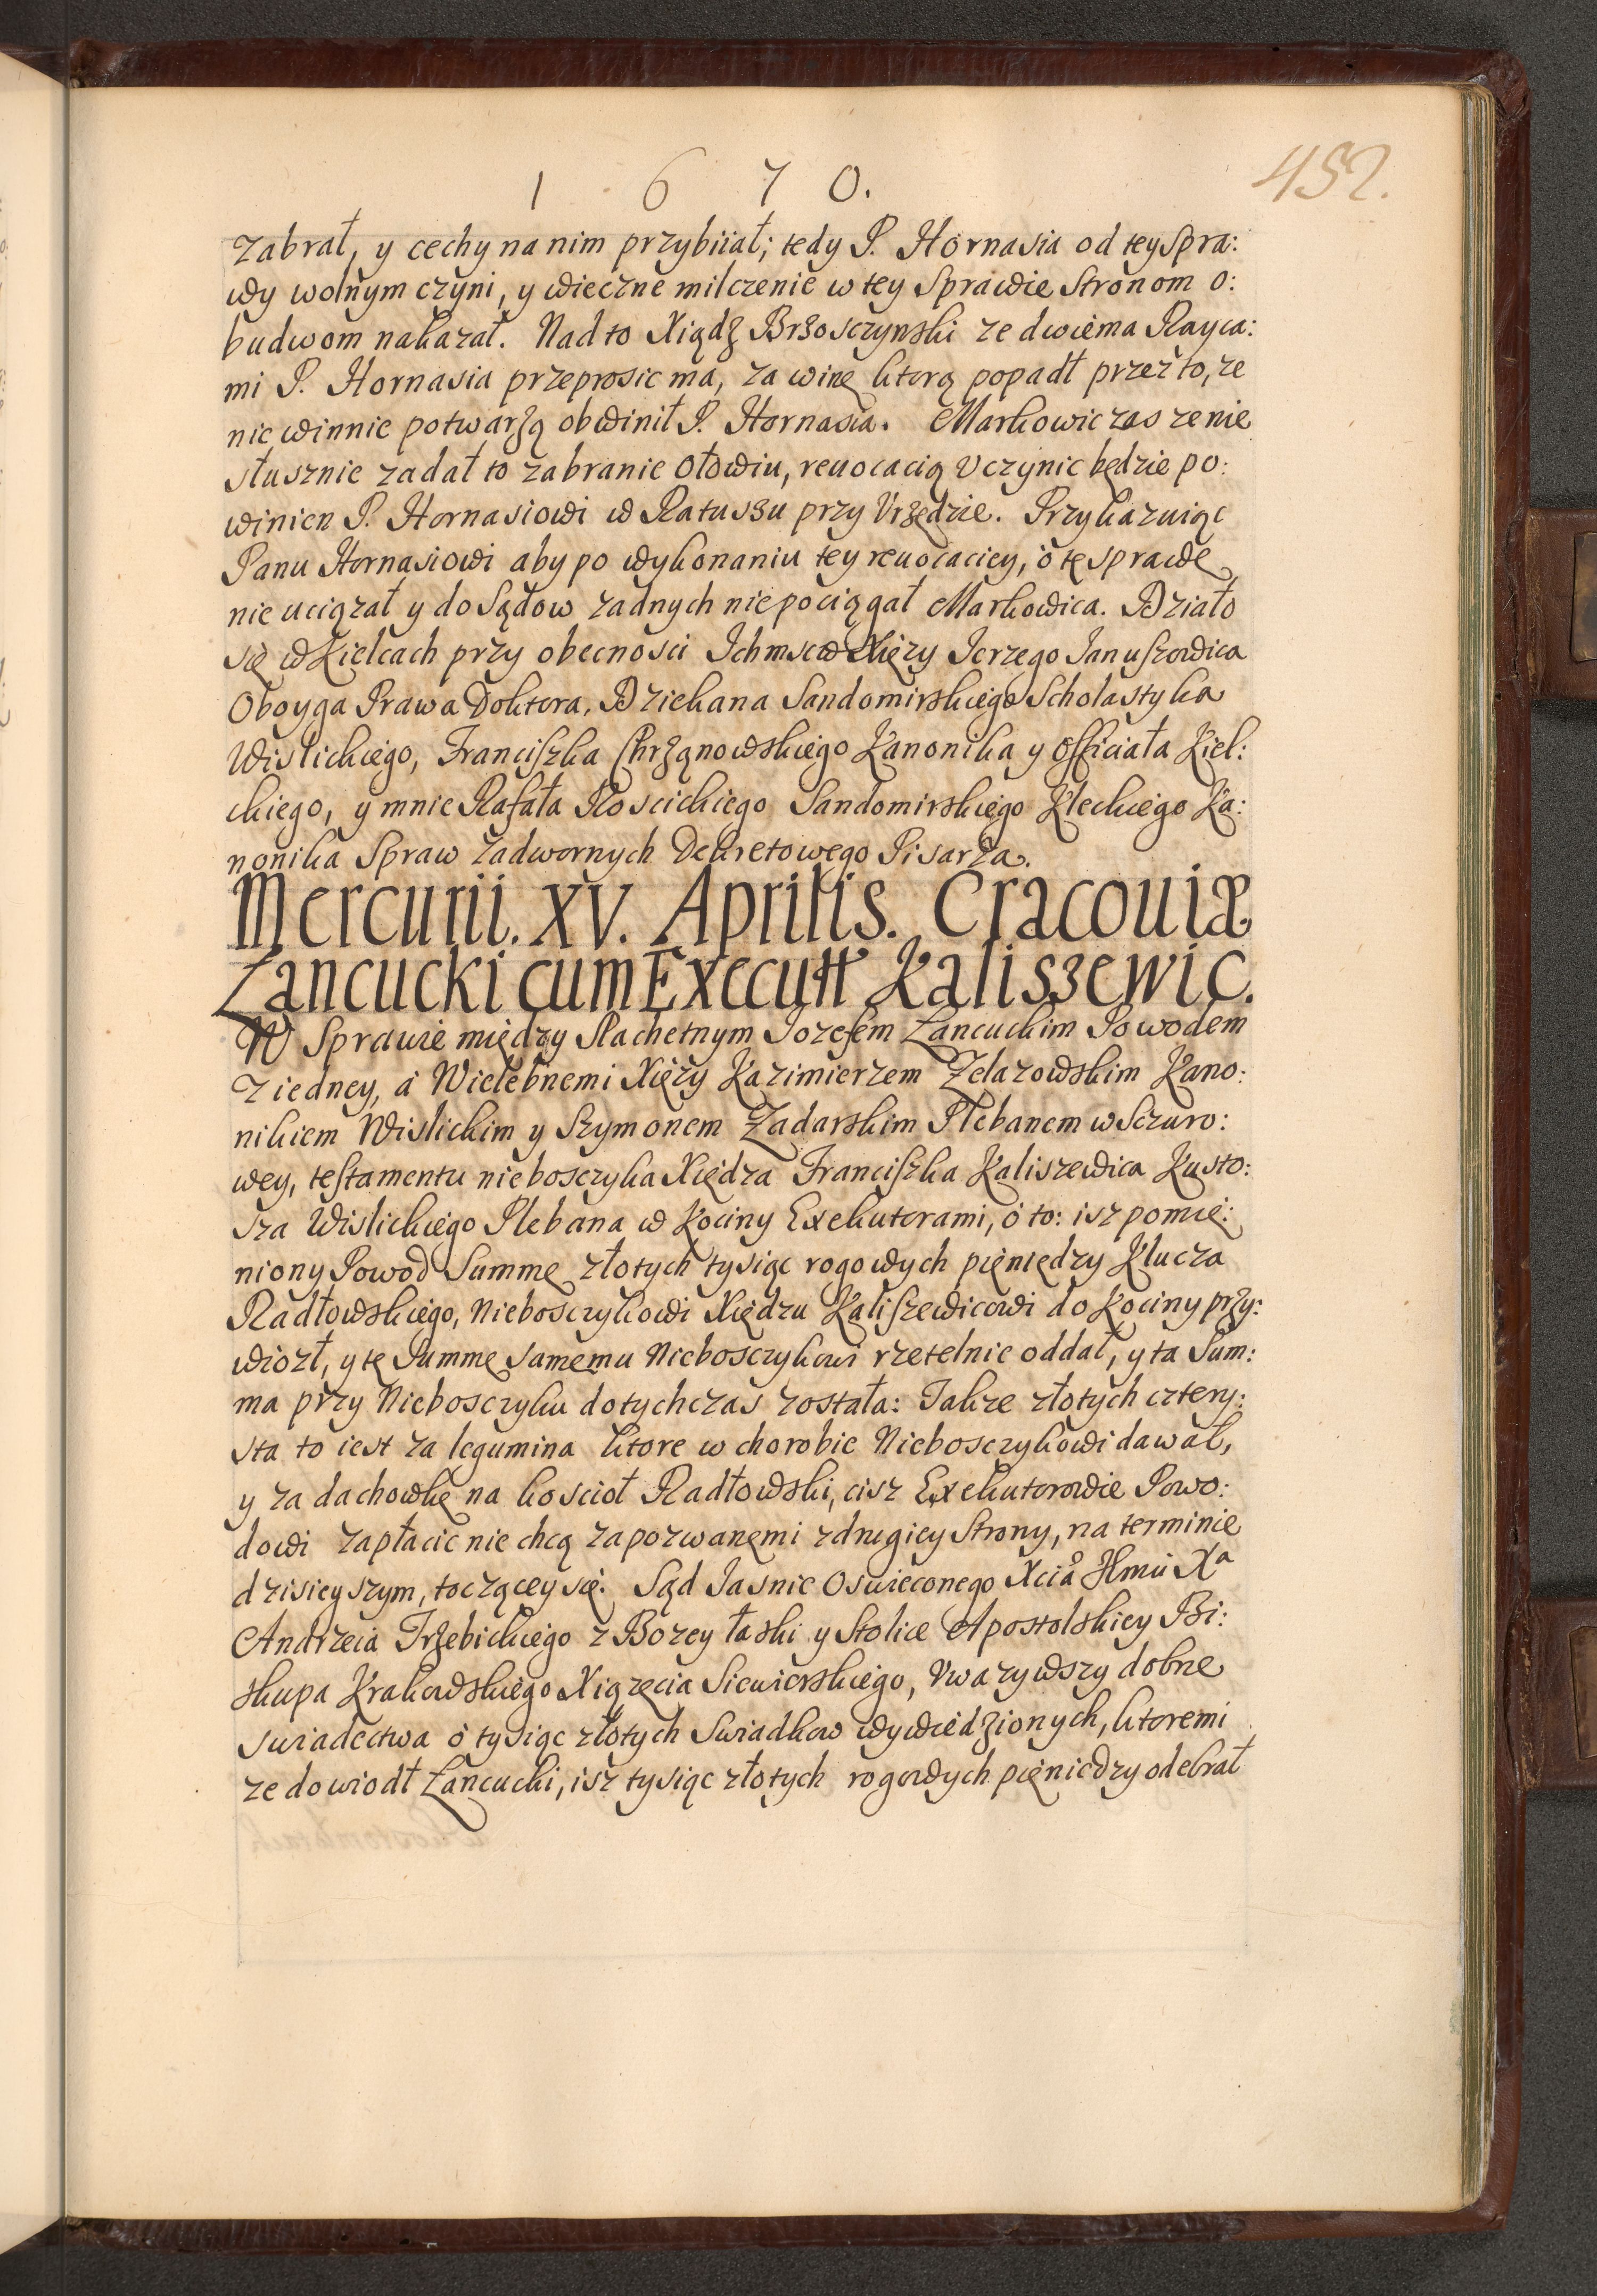 1 6 7 0.
452.
zabrał, y cechy na nim przybiiał; tedy P. Hornasia od tey Spra:
wy wolnym czyni, y wieczne milczenie w tey Sprawie Stronom o:
budwom nakazał. Nad to Xiądz Brzosczynski ze dwiema Rayca:
mi P. Hornasia przeprosic ma, za winę ktorą popadł przez to, ze
nie winnie potwarzą obwinił P. Hornasia. Markowic zas ze nie
słusznie zadał to zabranie Ołowiu, reuocacią Vczynic będzie po:
winien P. Hornasiowi w Ratuszu przy Vrzędzie. Przykazuiąc
Panu Hornasiowi aby po wykonaniu tey reuocaciey, o tę sprawę
nie uciązał y do Sądow zadnych nie pociągał Markowica. Działo
się w Kielcach przy obecnosci Ichmsciow Xięzy Ierzego Ianuszowica
Oboyga Prawa Doktora, Dziekana Sandomirskiego Scholastyka
Wislickiego, Franciszka Chrząnowskiego Kanonika y Officiała Kiel:
ckiego, y mnie Rafała Roscickiego Sandomirskiego Kleckiego Ka:
nonika Spraw zadwornych Dekretowego Pisarza.
Mercurii. XV. Aprilis. Cracouiæ
Łancucki cum Executt Kaliszewic.
W Sprawie między Slachetnym Iozefem Łancuckim Powodem
z iedney, a Wielebnemi Xięzy Kazimierzem Zelazowskim Kano:
nikiem Wislickim y Szymonem Zadarskim Plebanem w Sczuro:
wey, testamentu nieboszczyka Xiędza Franciszka Kaliszewica Kusto:
sza Wislickiego Plebana w Kociny Exekutorami, o to: isz pomie:
niony Powod Summę złotych tysiąc rogowych pieniędzy Klucza
Radłowskiego, Nieboszczykowi Xiędzu Kaliszewicowi do Kociny przy:
wiozł, y tę Summę samemu Nieboszczykowi rzetelnie oddał, y ta Sum:
ma przy Nieboszczyku dotychczas została: Takze złotych cztery:
sta to iest za legumina ktore w chorobie Nieboszczykowi dawał,
y za dachowkę na koscioł Radłowski, cisz Exekutorowie Powo:
dowi zapłacic nie chcą zapozwanemi z drugiey Strony, na terminie
dzisieyszym, toczącey się. Sąd Iasnie Oswieconego Xcia Jhmci Xa
Andrzeia Trzebickiego z Bozey łaski y Stolice Apostolskiey Bi:
skupa Krakowskiego Xiązęcia Siewierskiego, Vwazywszy dobrze
swiadectwa o tysiąc złotych Swiadkow wywiedzionych, ktoremi
ze dowiodł Łancucki, isz tysiąc złotych rogowych pieniędzy odebrał